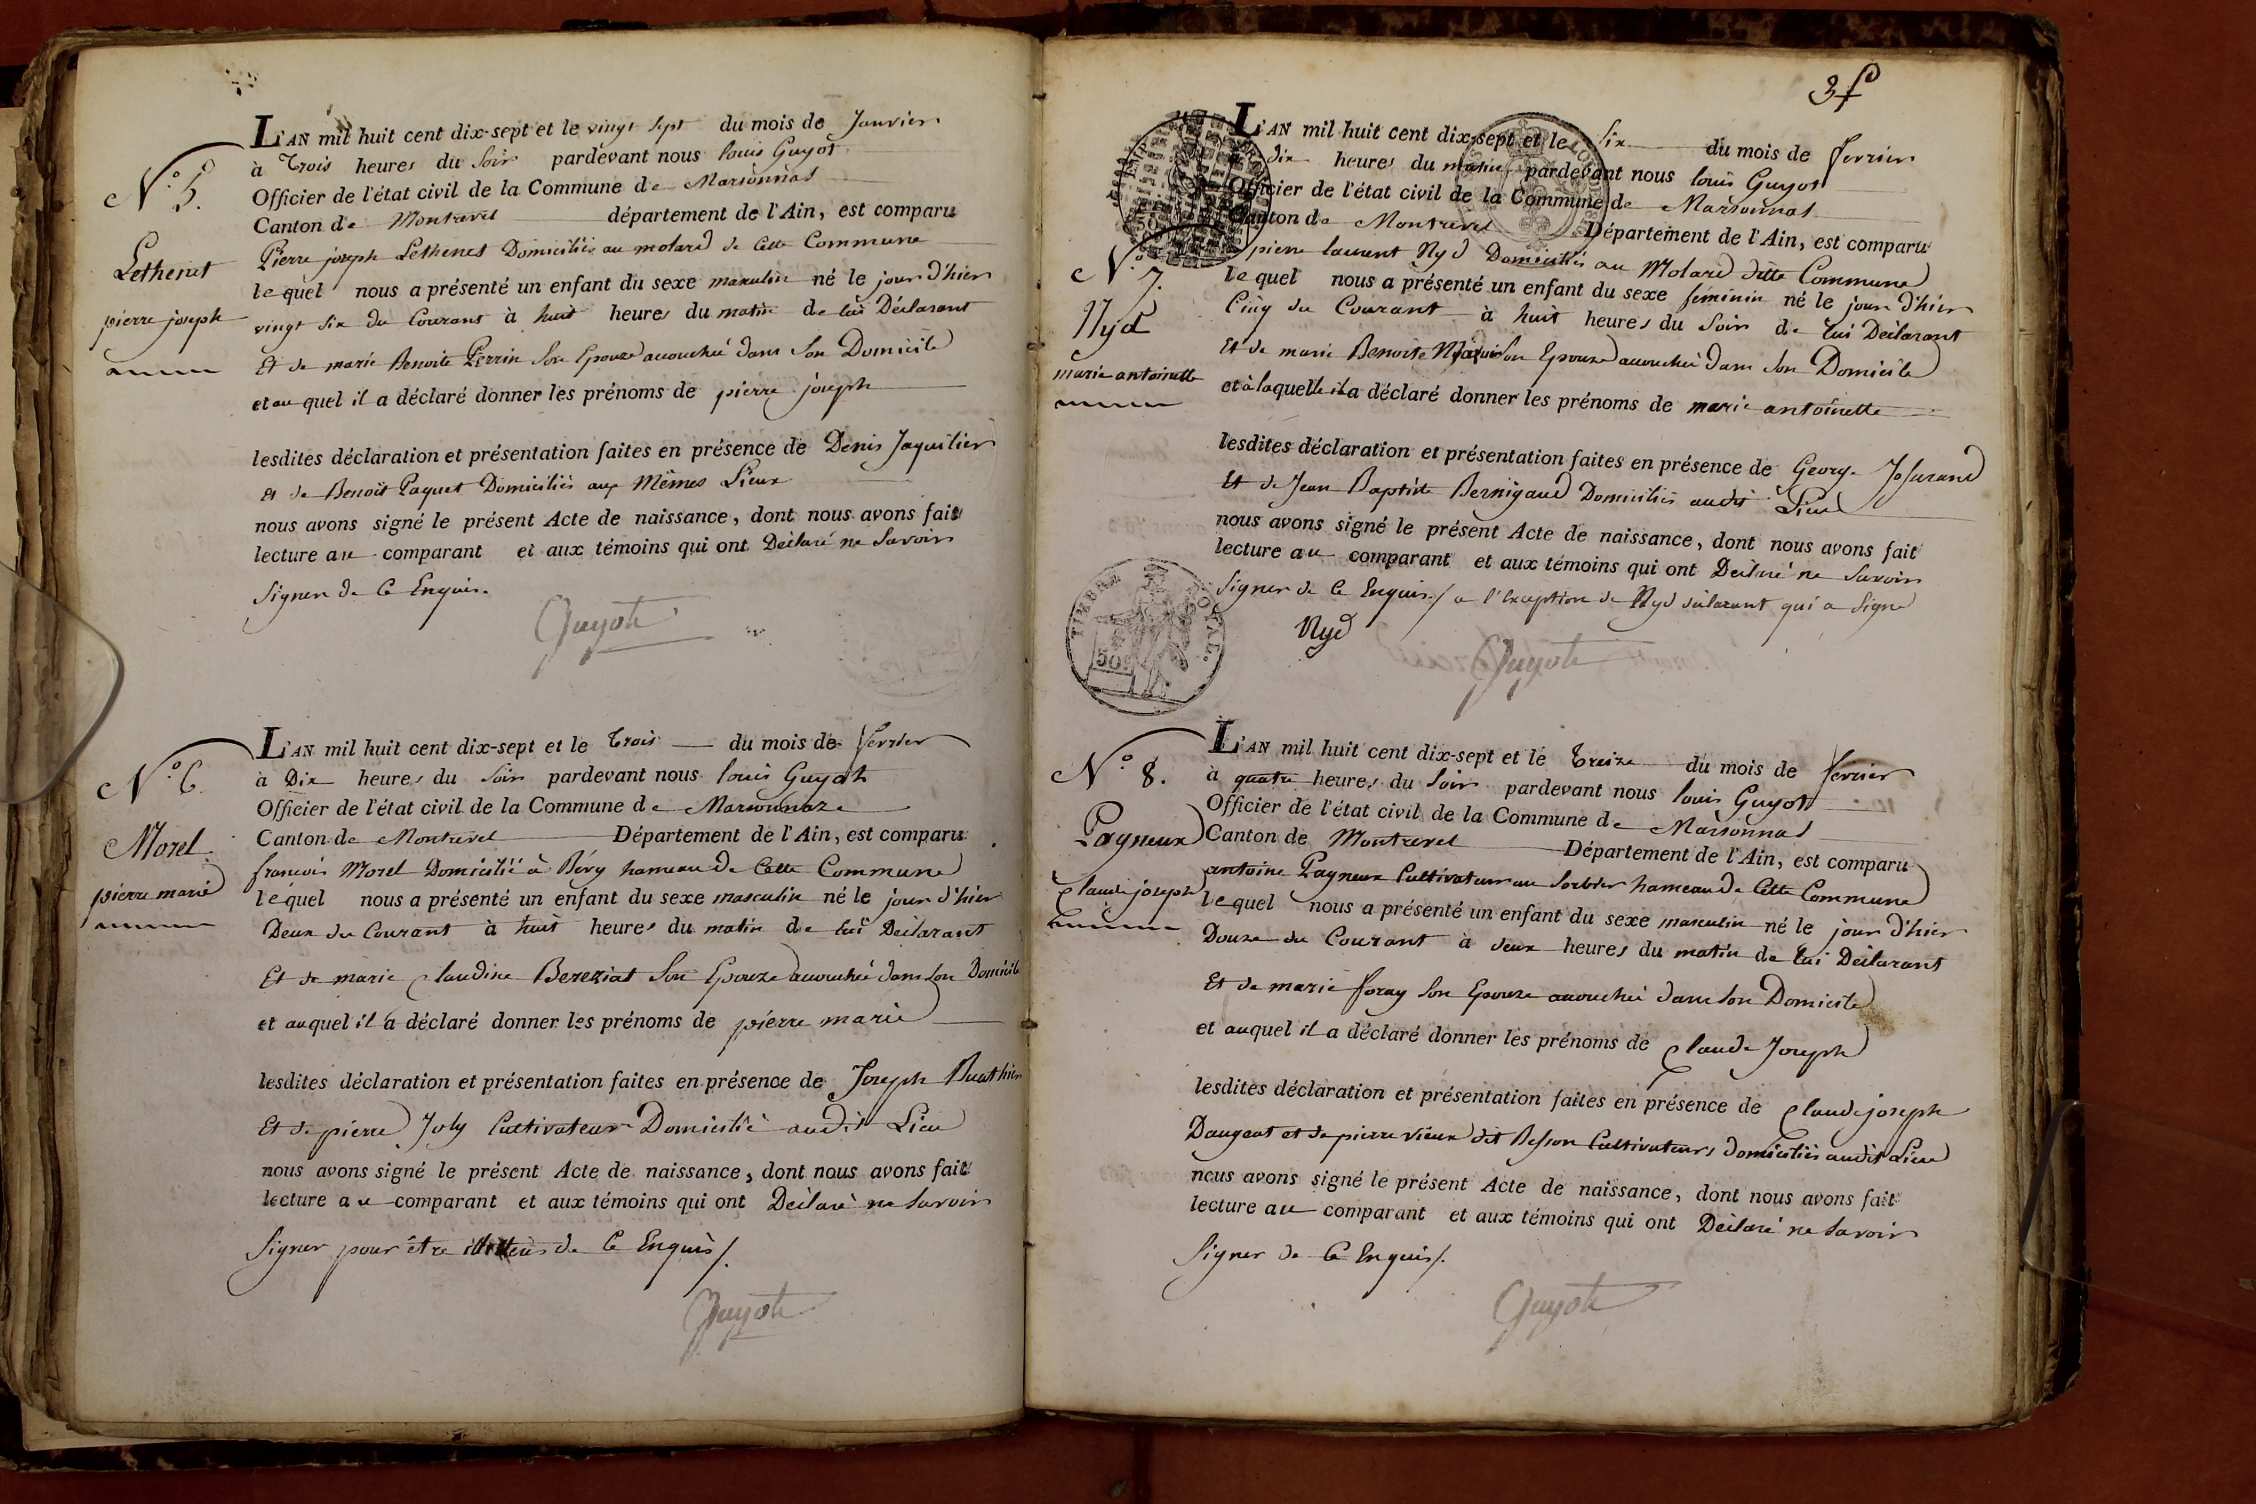 L'AN mil huit cent dix-sept et le vingt sept du mois de Janvier
à Trois heures du Soir pardevant nous louis Guyot
N.o 5.
Officier de l'état civil de la Commune de Marsonnas
Canton de Montrevel département de l'Ain, est comparu
Lethenet
Pierre joseph Lethenet Domiciliés au molard de Cette Commune
lequel nous a présenté un enfant du sexe masculin né le jour d'hier
pierre joseph
vingt six du Courant à huit heures du matin de lui Déclarant
Et de marie Benoite Perrin Son Epouze accouchée dans Son Domicile
et au quel il a déclaré donner les prénoms de pierre joseph
lesdites déclaration et présentation faites en présence de Denis Jaquilier
Et de Benoit Paquet Domiciliés aux Mêmes Lieux
nous avons signé le présent Acte de naissance, dont nous avons fait
lecture au comparant et aux témoins qui ont Déclaré ne Savoir
Signer de Ce Enquis.
Guyot
L'AN mil huit cent dix-sept et le Trois du mois de fevrier
N.o 6.
à Dix heures du Soir pardevant nous louis Guyot
Officier de l'état civil de la Commune de Marsonnaz
Canton de Montrevel Département de l'Ain, est comparu
Morel
francois Morel Domicilié à Bévy hameau de Cette Commune
pierre marie
lequel nous a présenté un enfant du sexe masculin né le jour d'hier
Deux du Courant à huit heures du matin de lui Déclarant
Et de marie Claudine Bereziat Son Epouze accouchée dans Son Domicile
et auquel il a déclaré donner les prénoms de pierre marie
lesdites déclaration et présentation faites en présence de Joseph Buathier
Et de pierre Joly Cultivateur Domicilié audit Lieu
nous avons signé le présent Acte de naissance, dont nous avons fait
lecture au comparant et aux témoins qui ont Déclaré ne Savoir
Signer pour être de Ce Enquis/.
Guyot
3
L'AN mil huit cent dix-sept et le Six du mois de fevrier
dix heures du matin pardevant nous louis Guyot
Officier de l'état civil de la Commune de Marsonnas
Canton de Montrevel Département de l'Ain, est comparu
N.o 7.
pierre laurent Nyd Domiciliés au Molard ditte Commune
lequel nous a présenté un enfant du sexe féminin né le jour d'hier
Nyd
Cinq du Courant à huit heures du Soir de lui Déclarant
Et de marie Benoite Son Epouze accouchée dans Son Domicile
marie antoinette
et à laquelle il a déclaré donner les prénoms de marie antoinette
lesdites déclaration et présentation faites en présence de George Josurand
Et de Jean Baptiste Bernigaud Domiciliés audit Lieu
nous avons signé le présent Acte de naissance, dont nous avons fait
lecture au comparant et aux témoins qui ont Déclaré ne Savoir
Signer de Ce Enquis./ a l'Exception de Nyd déclarant qui a Signé
TIMBRE ROYAL.
50c
Nyd
Guyot
L'AN mil huit cent dix-sept et le Treize du mois de fevrier
N.o 8.
à quatre heures du Soir pardevant nous louis Guyot
Officier de l'état civil de la Commune de Marsonnas
Pagneux
Canton de Montrevel Département de l'Ain, est comparu
antoine Pagneux Cultivateur au Sorbier hameau de Cette Commune
Claude joseph
lequel nous a présenté un enfant du sexe masculin né le jour d'hier
Douze du Courant à deux heures du matin de lui Déclarant
Et de marie foray Son Epouze accouchée dans Son Domicile
et auquel il a déclaré donner les prénoms de Claude Joseph
lesdites déclaration et présentation faites en présence de Claude joseph
Daugeat et de pierre vieux dit Besson Cultivateurs domiciliés audit Lieu
nous avons signé le présent Acte de naissance, dont nous avons fait
lecture au comparant et aux témoins qui ont Déclaré ne Savoir
Signer de Ce Enquis/.
Guyot